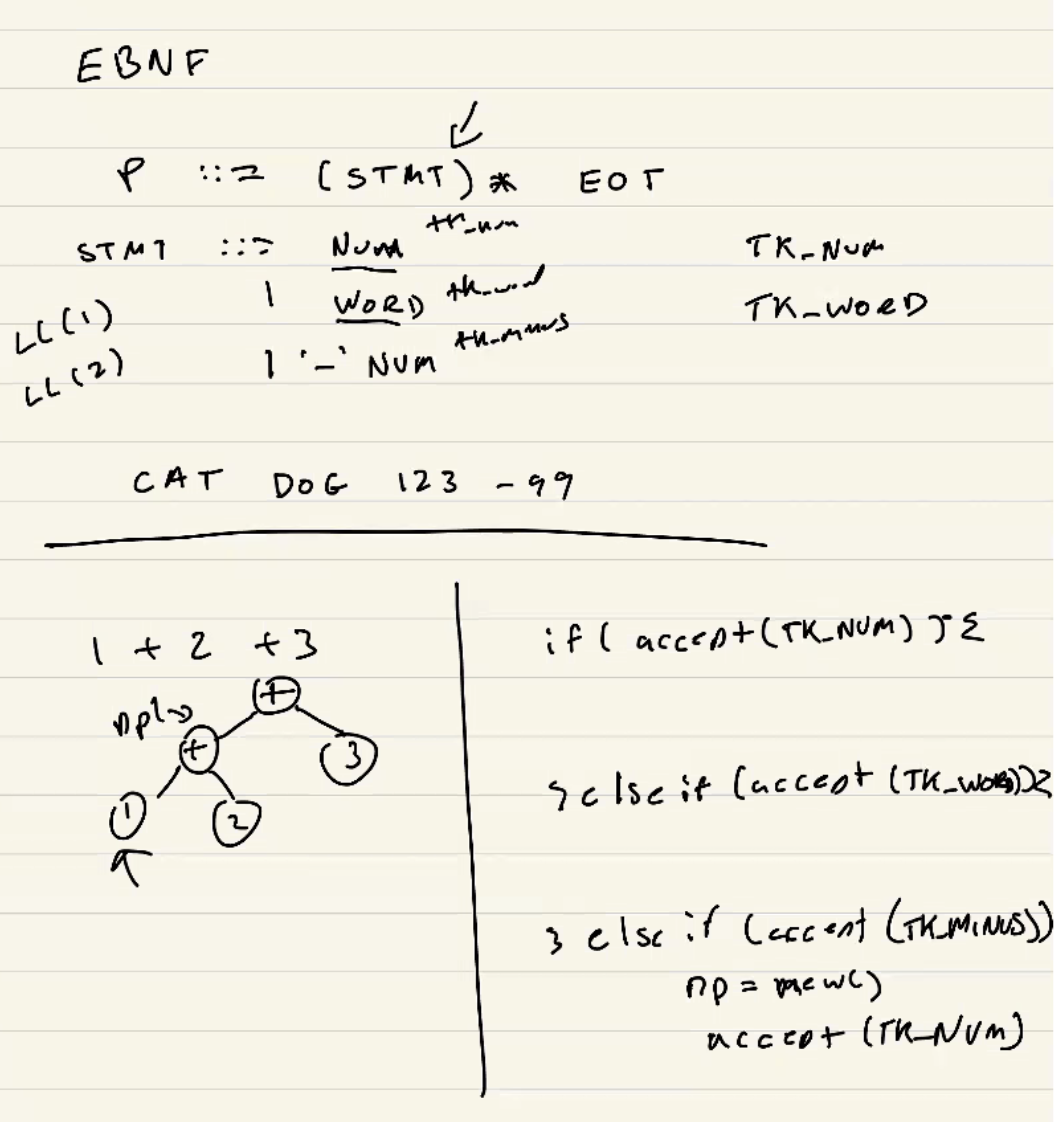 EBNF
P ::= (STMT)* EOT
STMT ::= NUM tk_num TK_NUM
| WORD tk_word TK_WORD
LL(1)
| '-' NUM tk_minus
LL(2)
CAT DOG 123 -99
1 + 2 +3
+
np1→
+
3
1
2
if( accept(TK_NUM) ){
} else if (accept (TK_WORD)){
} else if (accept (TK_MINUS))
np = new()
accept (TK_NUM)